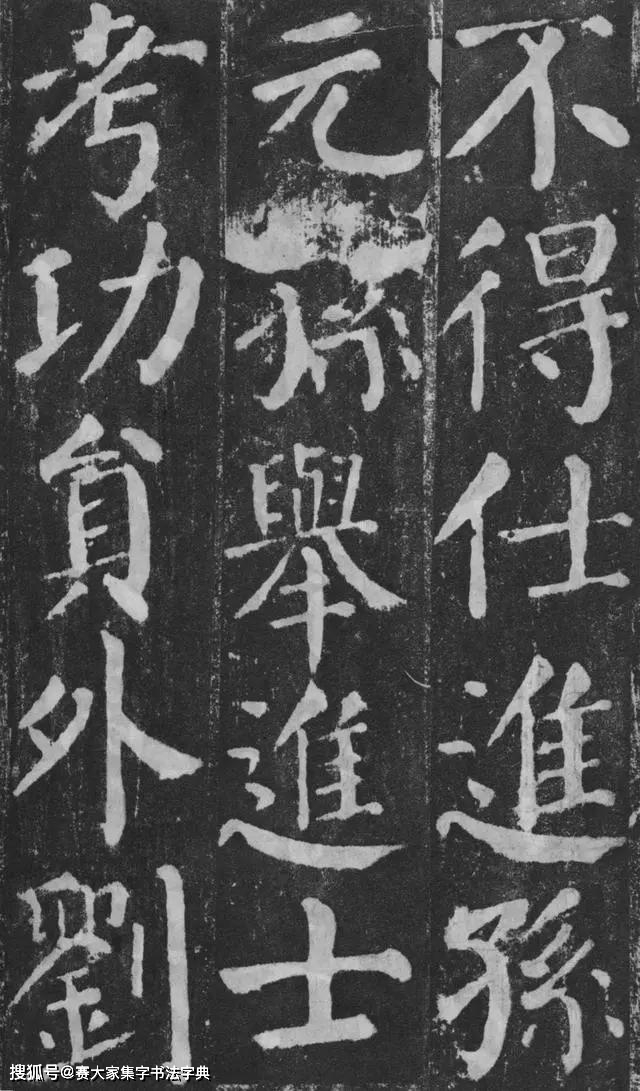 不得仕進孫
元孫舉進士
考功員外劉
搜狐号@赛大家集字书法字典